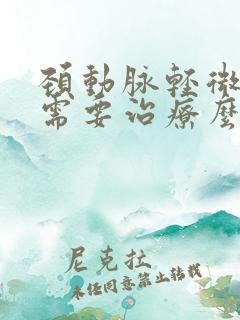 頸動脉輕微
需要治療麽
尼克拉
未经同意禁止转载